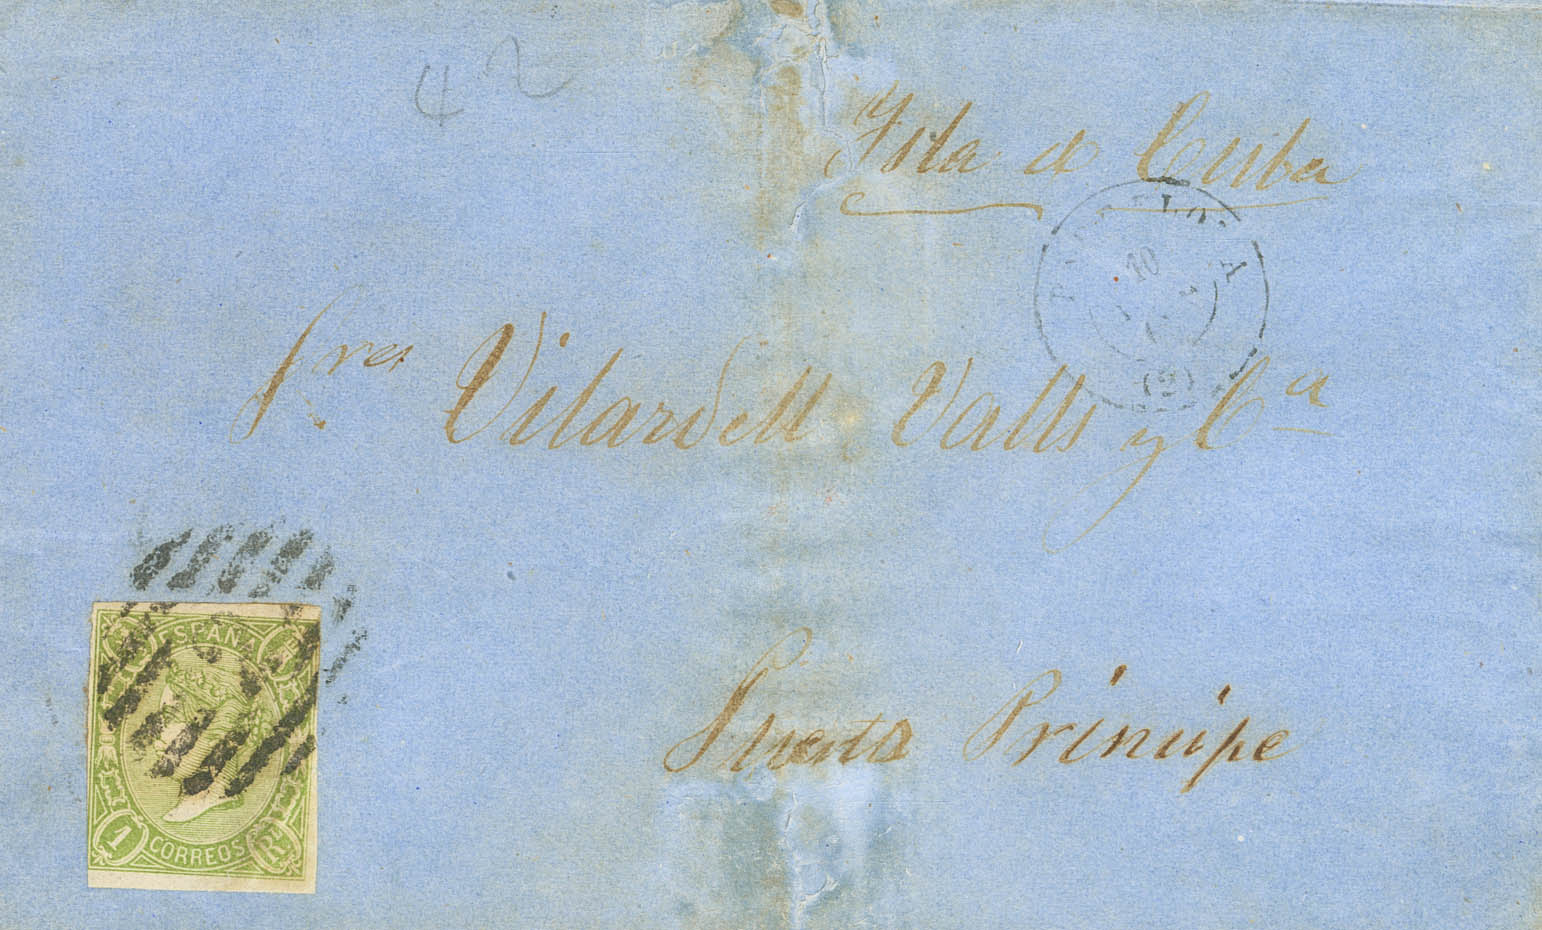 42
Ysla de Cuba
BARCELONA
10
(2)
Sres Vilardell Valls y Ca
Puerto Principe
ESPAÑA
1 CORREOS RL